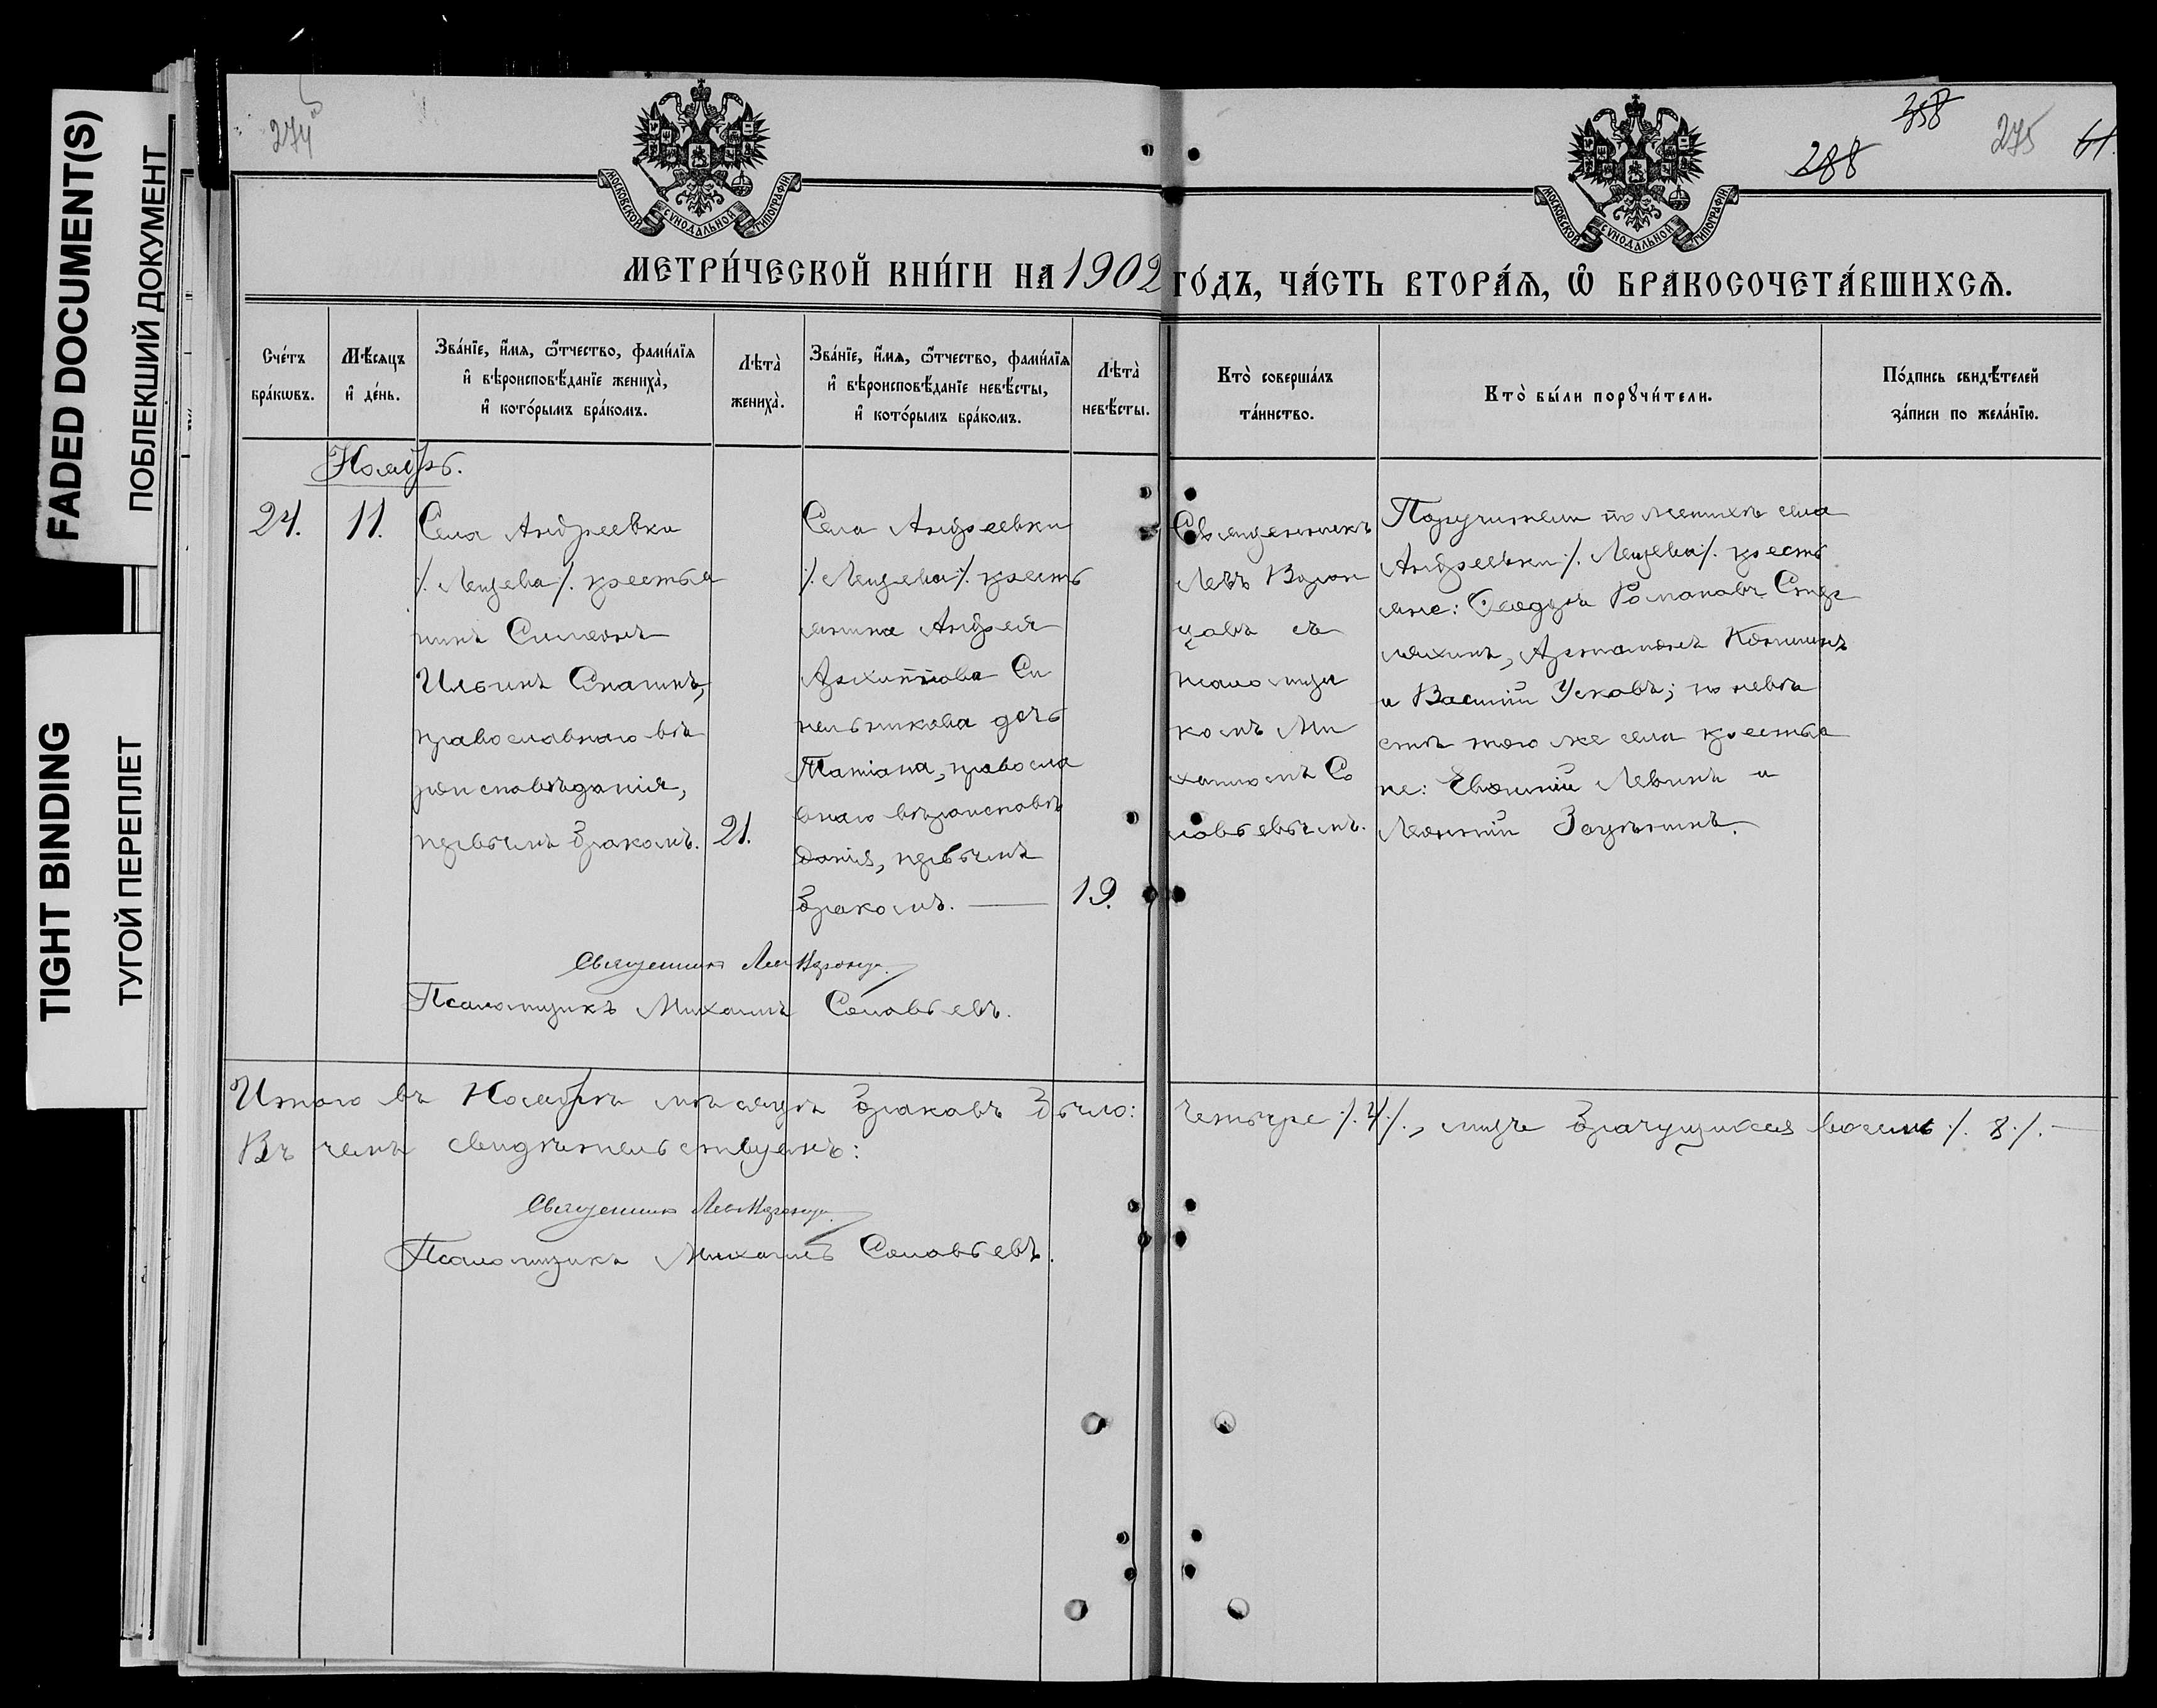 FADED DOCUMENT(S)
ПОБЛЕКШИЙ ДОКУМЕНТ
TIGHT BINDING
ТУГОЙ ПЕРЕПЛЕТ
274
288
275
61.
МОСКОВСКОЙ СѴНОДАЛЬНОЙ ТИПОГРАФІИ
МОСКОВСКОЙ СѴНОДАЛЬНОЙ ТИПОГРАФІИ
МЕТРИ́ЧЕСКОЙ КНИ́ГИ НА 1902 ГО́ДЪ, ЧА́СТЬ ВТОРА́Ѧ, Ѡ҆ БРАКОСОЧЕТА́ВШИХСѦ.
Сче́тъ
бра́кѡвъ.
Мѣ́сяцъ
и҆ де́нь.
Зва́нїе, и҆́мя, ѻ҆́тчество, фами́лїя
и҆ вѣроисповѣ́данїе жениха̀,
и҆ кото́рымъ бра́комъ.
Лѣта̀
жениха̀.
Зва́нїе, и҆́мя, ѻ҆́тчество, фами́лїя
и҆ вѣроисповѣ́данїе невѣ́сты,
и҆ кото́рымъ бра́комъ.
Лѣта̀
невѣ́сты.
Кто̀ соверша́лъ
та́инство.
Кто̀ бы́ли порꙋчи́тели.
По́дпись свидѣ́телей
за́писи по жела́нїю.
Ноябрь.
24.
11.
Села Андреевки
/. Лещева /. крестья
нинъ Симеонъ
Ильинъ
православнаго вѣ
роисповѣданія,
первымъ бракомъ.
21.
Села Андреевки
/. Лещева /. кресть
янина Андрея
Архиппова Си
нельникова дочь
Татіана, правосла
внаго вѣроисповѣ
данія, первымъ
бракомъ.
19.
Священникъ
Левъ Ворон
цовъ съ
псаломщи
комъ Ми
хаиломъ Со
ловьевымъ.
Поручители по женихѣ села
Андреевки /. Лещева /. кресть
яне: Ѳеодоръ Романовъ
Артамонъ
и Василій Усковъ; по невѣ
стѣ того же села крестья
не: Евѳимій Левинъ и
Леонтій
Священникъ Левъ Воронцовъ
Псаломщикъ Михаилъ Соловьевъ.
Итого въ Ноябрѣ мѣсяцѣ браковъ было: четыре /. 4 /., лицъ брачущихся восемь /. 8 /.
Въ чемъ свидѣтельствуемъ:
Священникъ Левъ Воронцовъ
Псаломщикъ Михаилъ Соловьевъ.